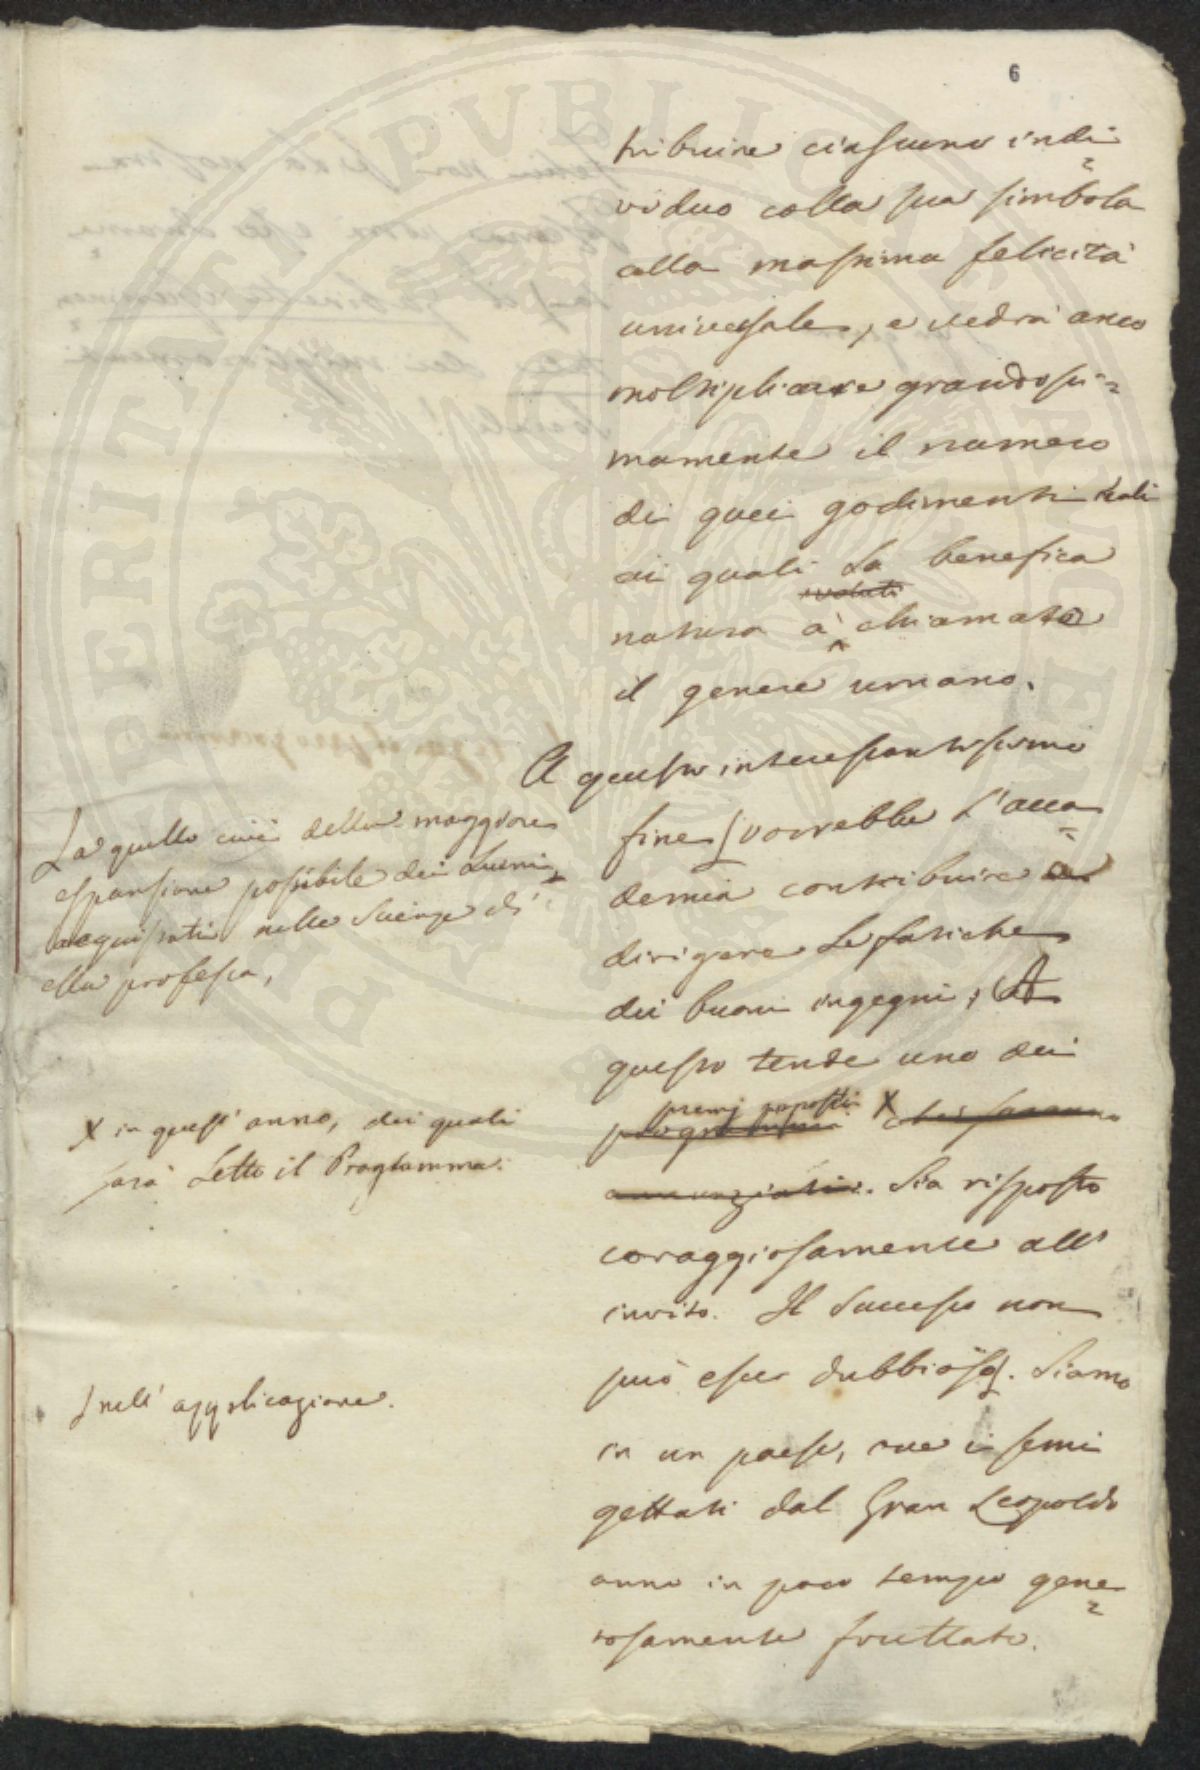 6
tribuire ciascuno indi=
viduo colla sua simbola
alla massima felicità
universale, e vedrà anco
moltiplicare grandiosis=
simamente il numero
di quei godimenti reali
ai quali la benefica
natura à chiamato
il genere umano.
A questo interessantissimo
fine vorrebbe L'acca=
demia contribuire a
dirigere Le fatiche
dei buoni ingegni; A
questo tende uno dei
premj proposti X che saranno
programmi
annunziati. Sia risposto
coraggiosamente all'
invito. Il Successo non
può esser dubbioso. Siamo
in un paese, ove i semi
gettati dal Gran Leopoldo
anno in poco tempo gene=
rosamente fruttato.
a quello cioè della maggiore
espansione possibile dei Lumi
acquistati nelle Scienze di
ella professa,
X in quest'anno, dei quali
sarà Letto il Programma.
nell'applicazione.
PVBLICAE
PERIT